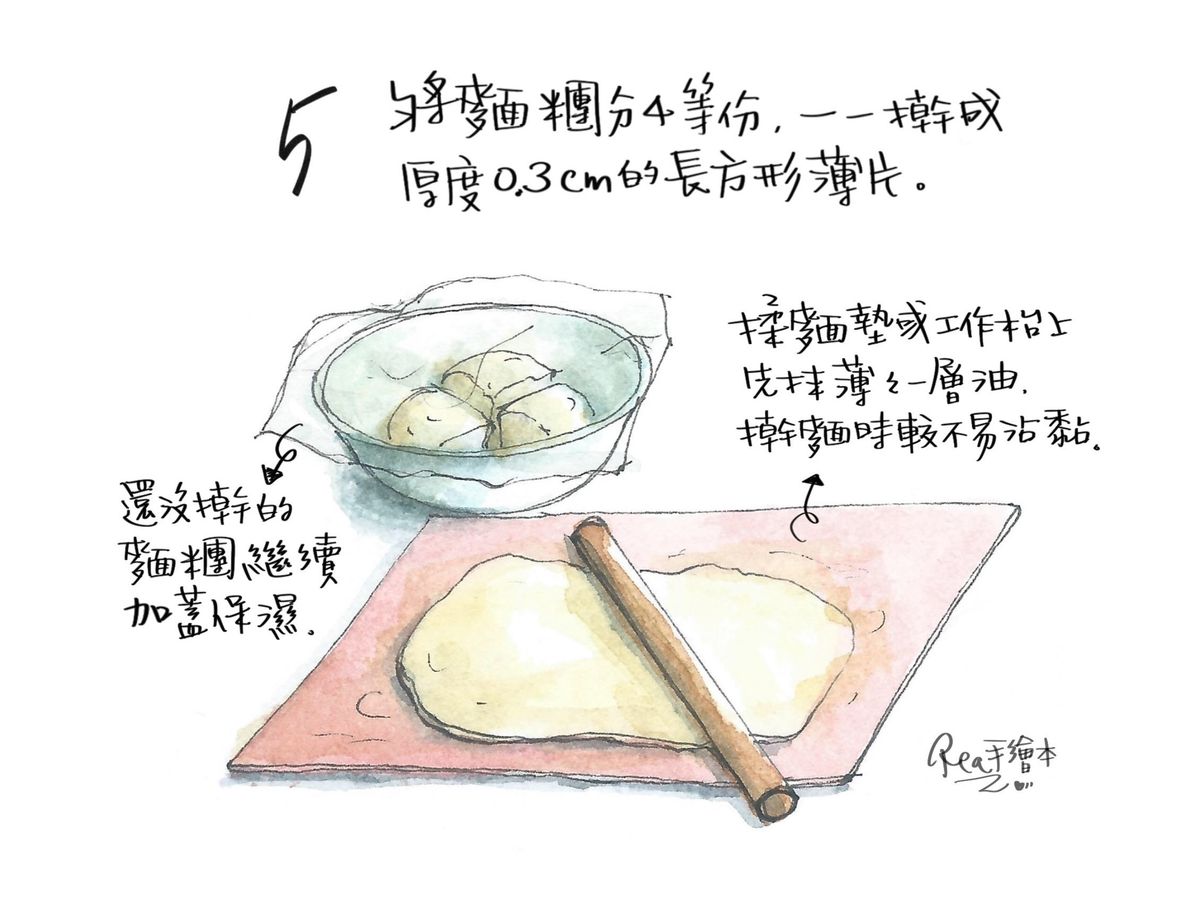 5
將麵糰分4等份, 一一擀成
厚度0.3cm的長方形薄片。
揉麵墊或工作枱上
先抹薄々一層油.
擀麵時較不易沾黏.
還沒擀的
麵糰繼續
加蓋保濕.
Rea手繪本